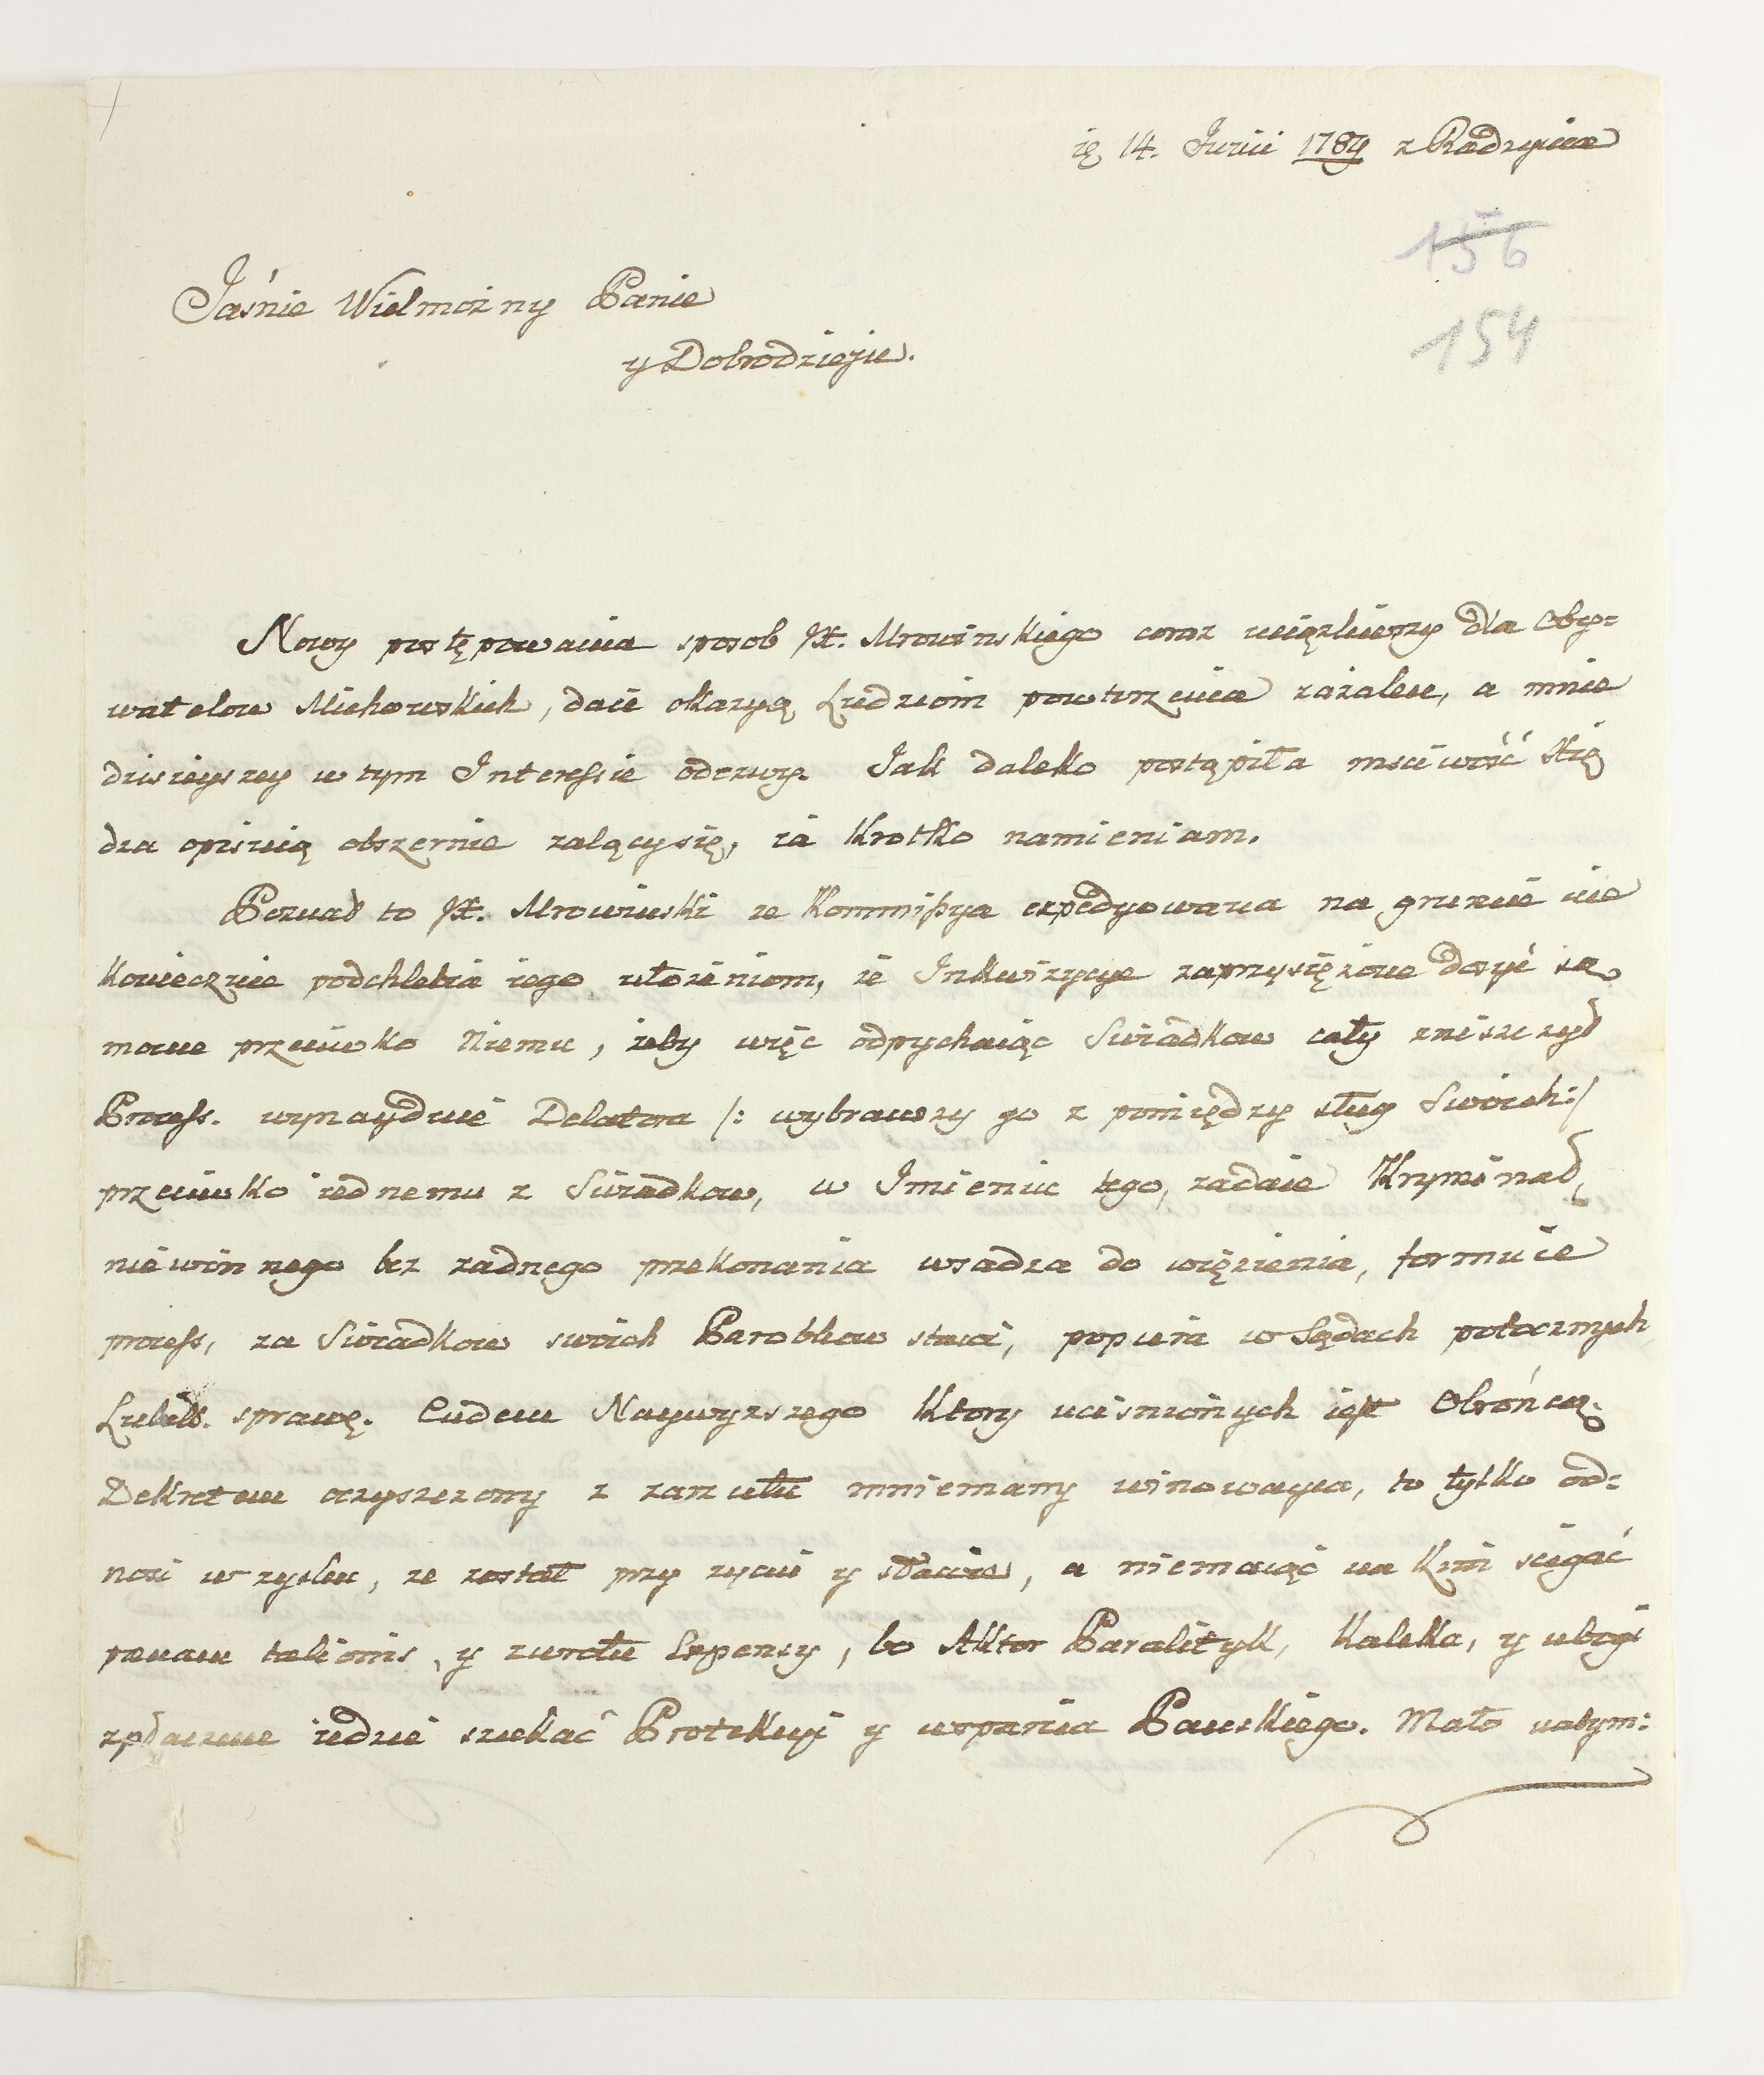 14. Junii 1784 z Radzynia
156
154
Jaśnie Wielmożny Panie
y Dobrodzieju.
Nowy postępowania sposob JX. Mrowinskiego coraz uciążliwszy dla Oby=
watelow Michowskich, daie okazyą Ludziom powtorzenia zażaleń, a mnie
dzisieyszey w tym Interessie odezwy. Jak daleko postąpiła msciwość Xię
dza opisuią obszernie żalący się, ia krotko namieniam.
Poznał to JX. Mrowinski ze Kommissya expedyowana na gruncie nie
koniecznie podchlebia iego ułożeniom, że Inkwizycye zaprzysiężone dosyć są
mocne przeciwko Niemu, żeby więc odpychaiąc Swiadkow cały zniszczył
Process. wynayduie Delatora /: wybrawszy go z pomiędzy sług Swoich :/
przeciwko iednemu z Swiadkow, w Imieniu tego, zadaie Kryminał,
niewinnego bez zadnego przekonania wsadza do więzienia, formuie
process, za Swiadkow swoich Parobkow stawi, popiera w Sądach potocznych
Lubel. sprawę. Cudem Naywyzszego Ktory ucisnionych iest Obrońcą.
Dekretem oczyszczony z zarzutu mniemany winowayca, to tylko od=
nosi w zysku, ze został przy zyciu y sławie, a niemaiąc na kim sciągać
paenam talionis, y zwrotu Expensy, bo Aktor Paralityk, Kaleka, y ubogi
z płaczem iedzie szukać Protekcyi y wsparcia Panskiego. Mało natym: